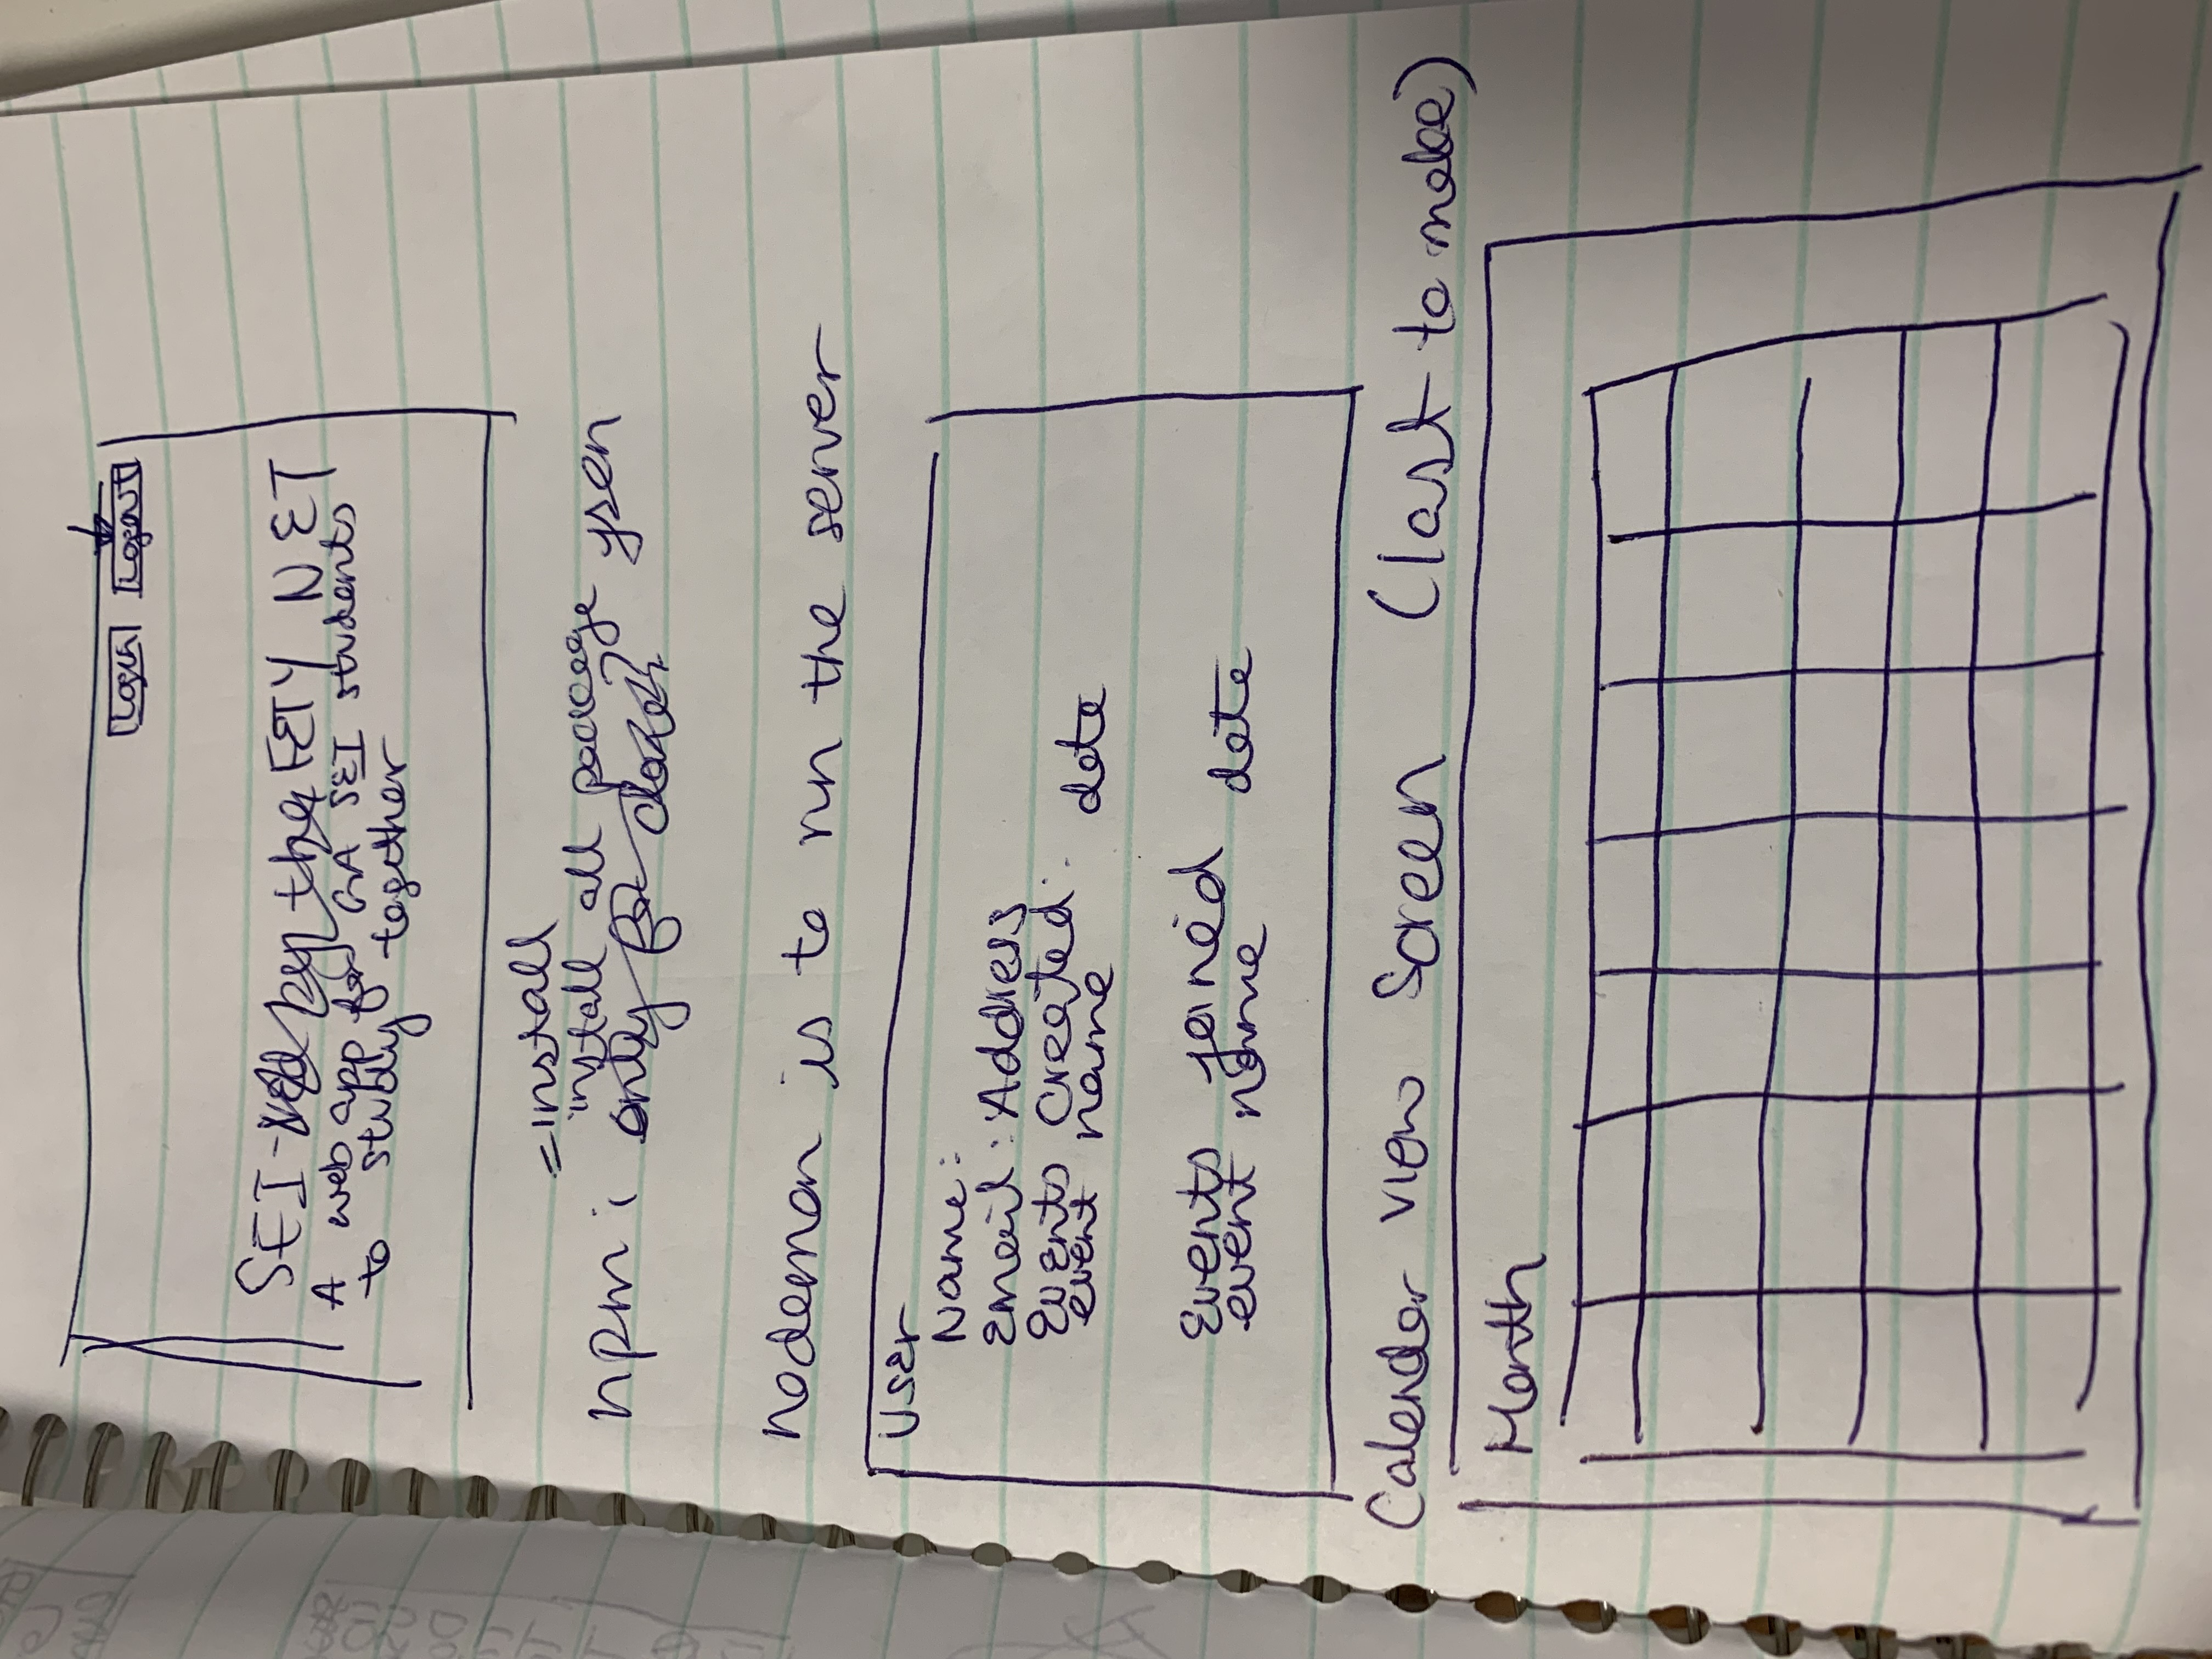 Login Logout
SEI- FETY NET
A web app for GA SEI students
to study together
= install
install all package json
npm i only for
nodemon is to run the server
User
Name:
Email: Address
Events Created:
event name date
Events joined
event name date
Calender view Screen (last to make)
Month